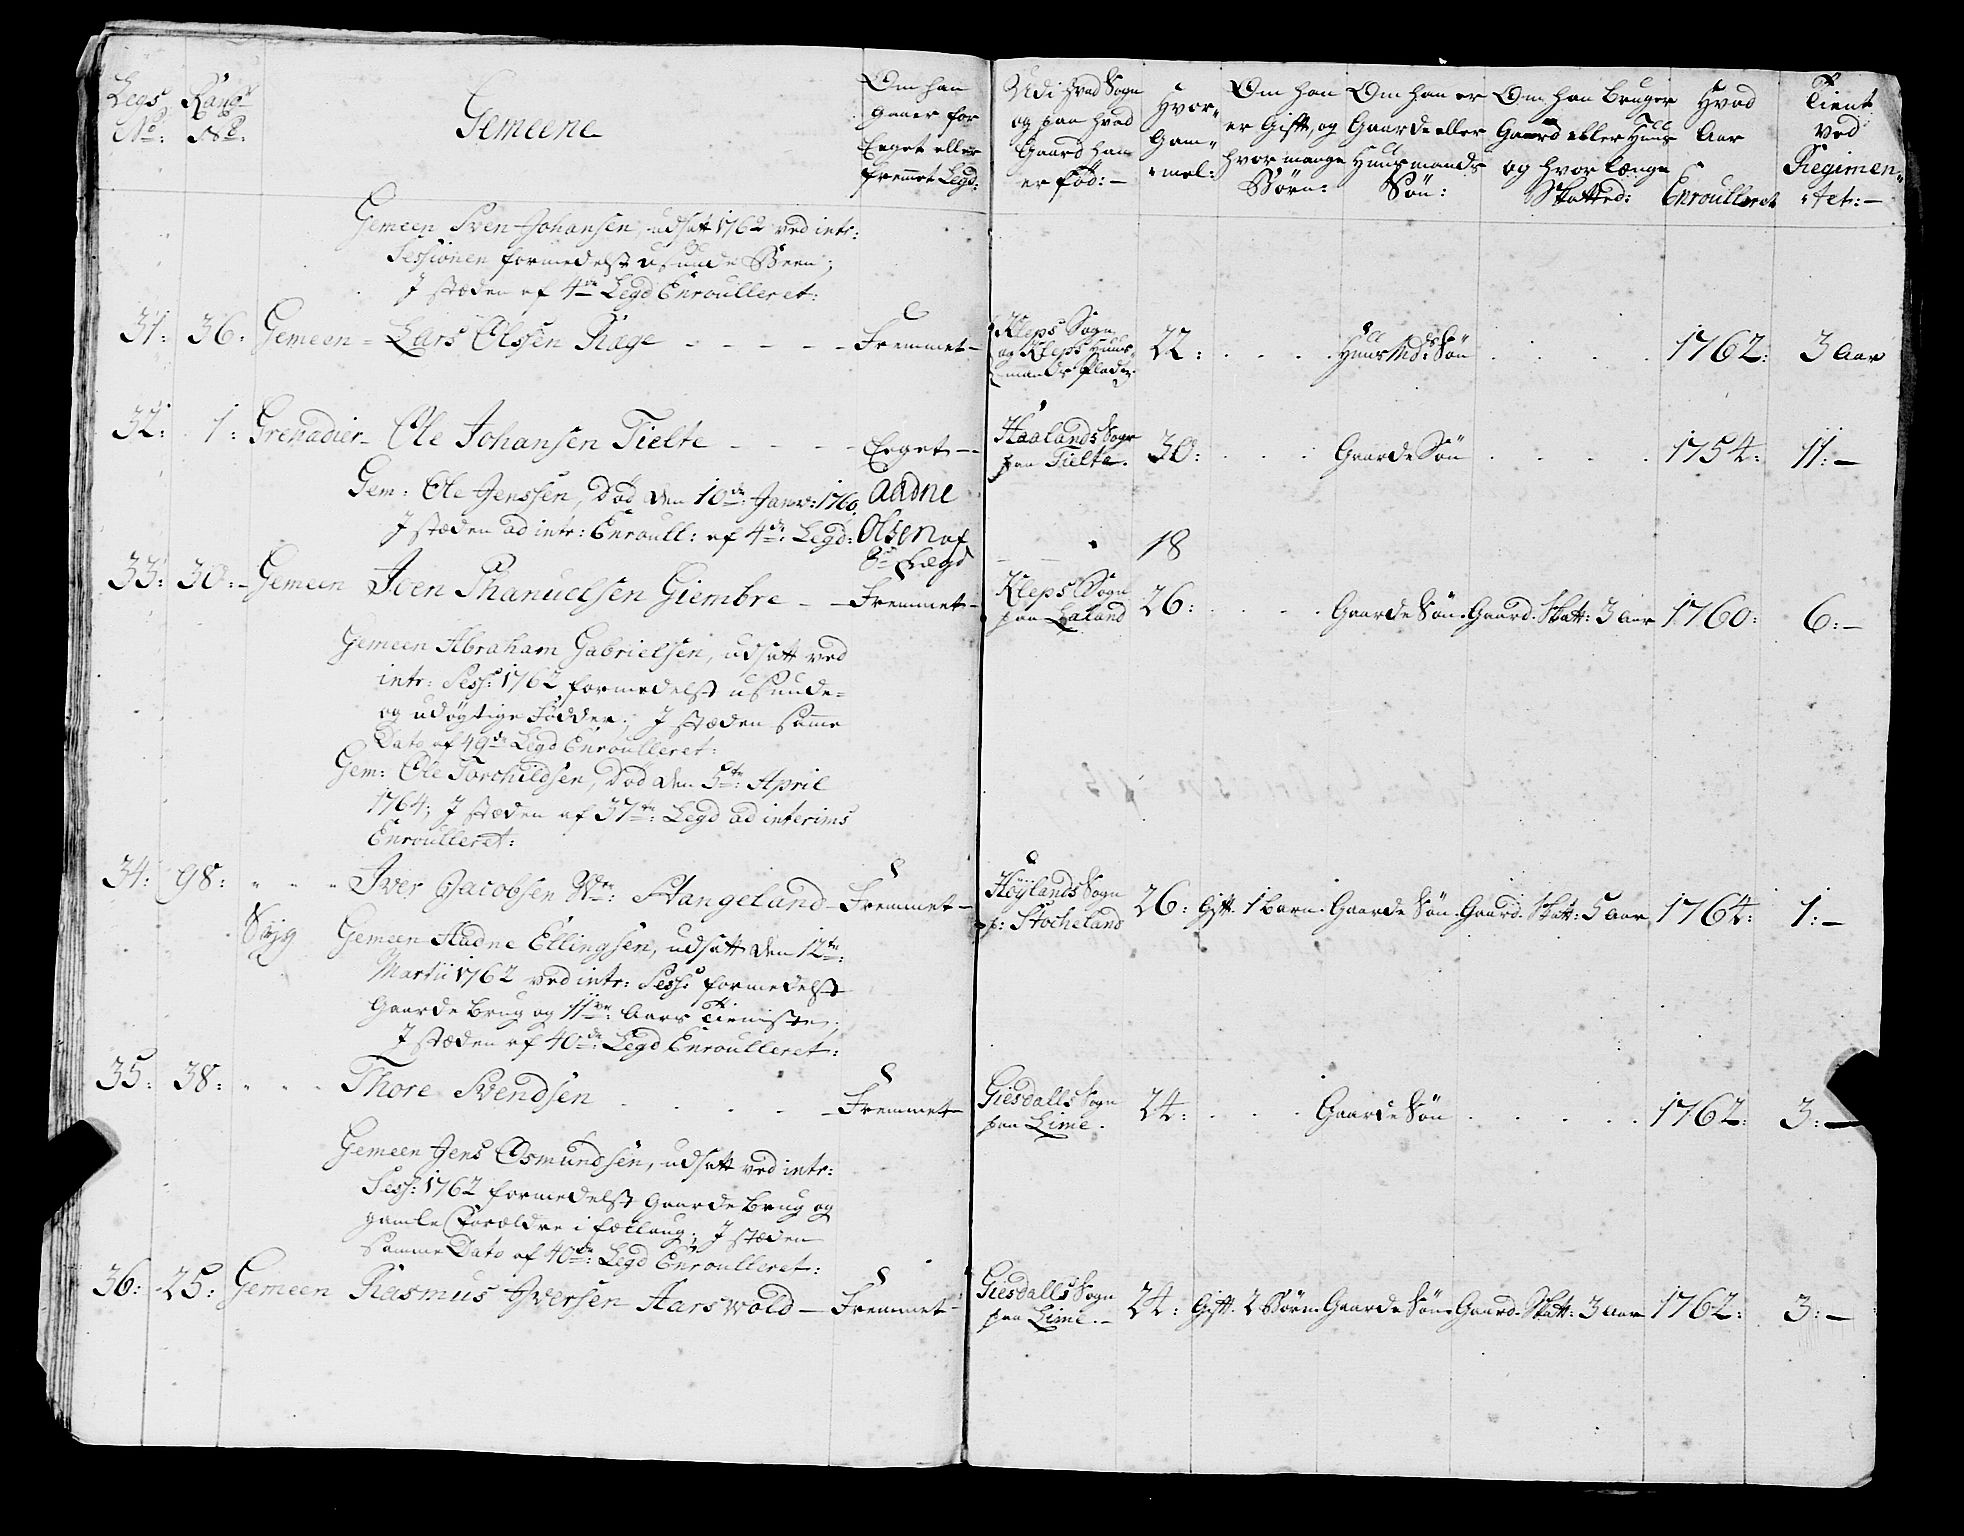 Legs No: Rang No:
Gemeene
Om han gaaer for Eeget eller fremet Legd:
Udi hvad Sogn og paa hvad Gaard han er föd:
Hvor gammel:
Om han er Gift, og hvor mange Börn:
Om han er Gaarde eller Huusmands Sön:
Om han bruger Gaard eller Huus og hvor længe Skatted:
Hvad Aar Enroulleret
Tient ved Regimentet:
Gemeen Sven Johansen, udsatt 1762 ved intr:
Sessionen formedelst usunde Been;
I stæden af 4de Legd Enroulleret:
31: 36: Gemeen Lars Olssen Ræge - - - - Fremmet Kleps Sogn og Kleps Huusmands Pladz 22: Huus Md: Sön 1762: 3 Aar
32: 1: Grenadier Ole Johansen Tielte - - - - Eeget Haalands Sogn paa Tielte. 30: Gaarde Sön 1754: 11:
Gem: Ole Jenssen, Död den 10de Janv: 1760. Aadne
I stæden ad intr: Enroull: af 4de Legd: Olsen af
8de Lægd 18
33: 30: Gemeen Iven Phanuelsen Giembre - - Fremmet Kleps Sogn paa Laland 26: Gaarde Sön. Gaard. Skatt: 3 Aar 1760: 6:
Gemeen Abraham Gabrielsen, udsatt ved
intr: Sess: 1762 formedelst usunde
og udögtige Födder; I stæden samme
Dato af 49de Legd Enroulleret:
Gem: Ole Torchildsen, Död den 5te April
1764; I stæden af 37te Legd ad interims
Enroulleret:
34: 98: " " " Iver Jacobsen Stangeland Fremmet Höylands Sogn p: Stocheland 26: Gift. 1 Barn. Gaarde Sön. Gaard. Skatt: 5 Aar 1764: 1:
Syg Gemeen Aadne Ellingsen, udsatt den 12te
Martii 1762 ved intr: Sess: formedelst
Gaarde brug og 11ve Aars Tieniste;
I stæden af 40de Legd Enroulleret:
35: 38: " " " Thore Svendsen Fremmet Giesdalls Sogn paa Lime. 24: Gaarde Sön 1762: 3:
Gemeen Jens Osmundsen, udsatt ved intr:
Sess: 1762 formedelst Gaarde brug og
gamle Forældre i fællaug; I stæden
samme Dato af 40de Legd Enroulleret:
36: 25: Gemeen Rasmus Iversen Aarswold Fremmet Giesdalls Sogn paa Lime. 24: Gift. 2 Börn. Gaarde Sön. Gaard. Skatt: 3 Aar 1762: 3: